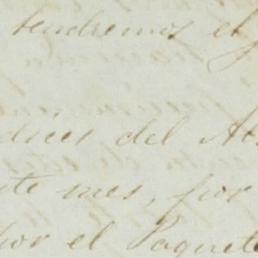 tendremos el
dices del
te mes, por
por el Paquete